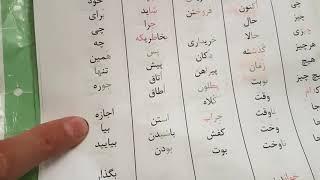 خود شاید فروختن اکنون
برای چرا حال هرچیز
چی بخاطریکه خریداری حالا چیزی
چه پس دکان گذشته هیچ
همین پیش پیراهن زمان هیچ چیز
تنها اتاق پطلون نوبت
جوره اطاق کلاه وقت
اجازه استن جراب وقت
بیا باسیدن کفش وخت
بیایید بودن بوت ناوخت
بگذار